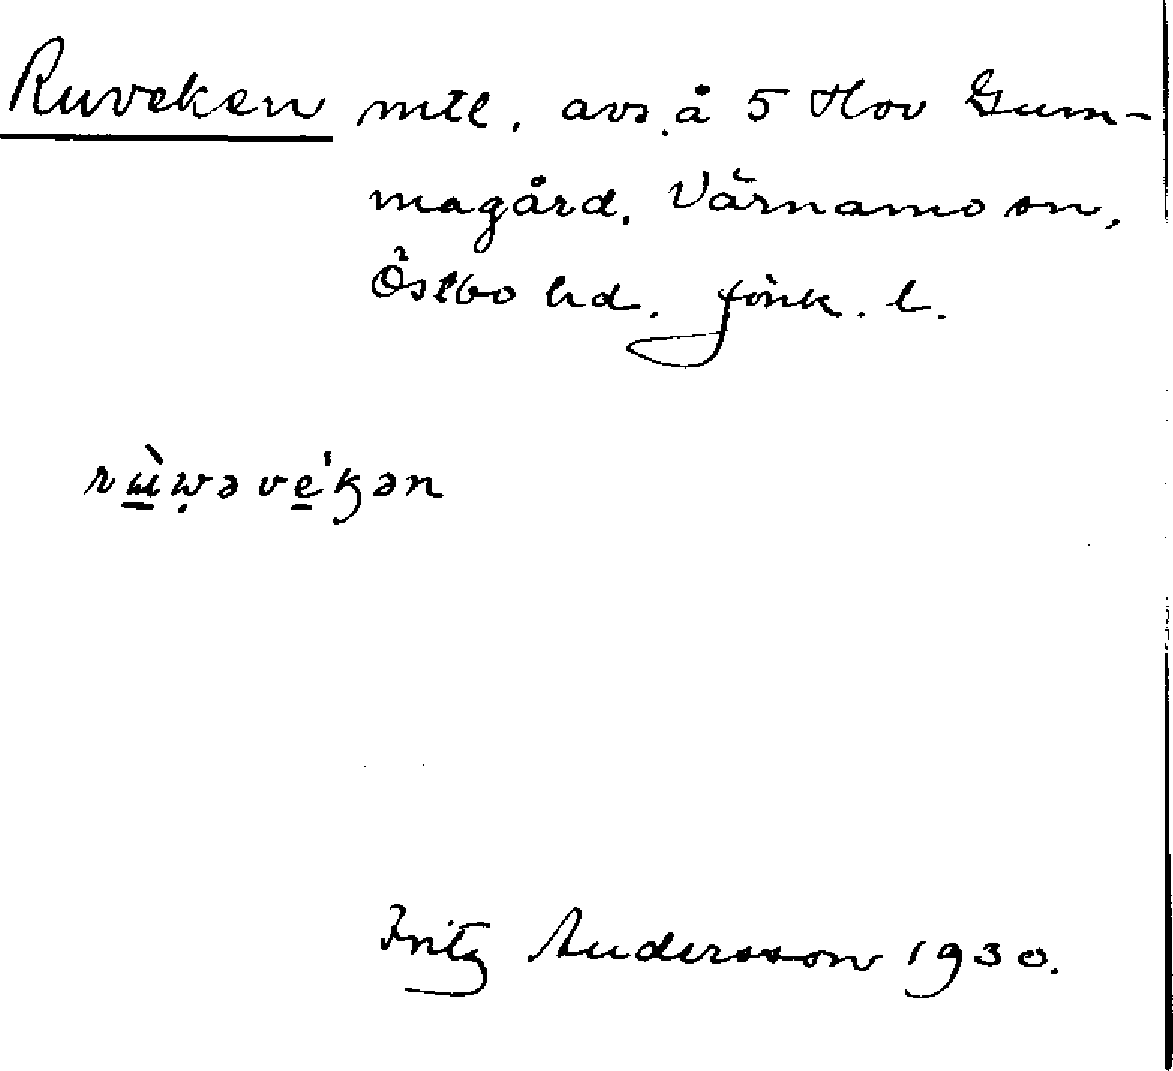 Ruveken mtl. avs. å 5 Hov Gum-
magård. Värnamo sn,
Östbo hd. Jönk. l.
rùwəvékən
Fritz Andersson 1930.